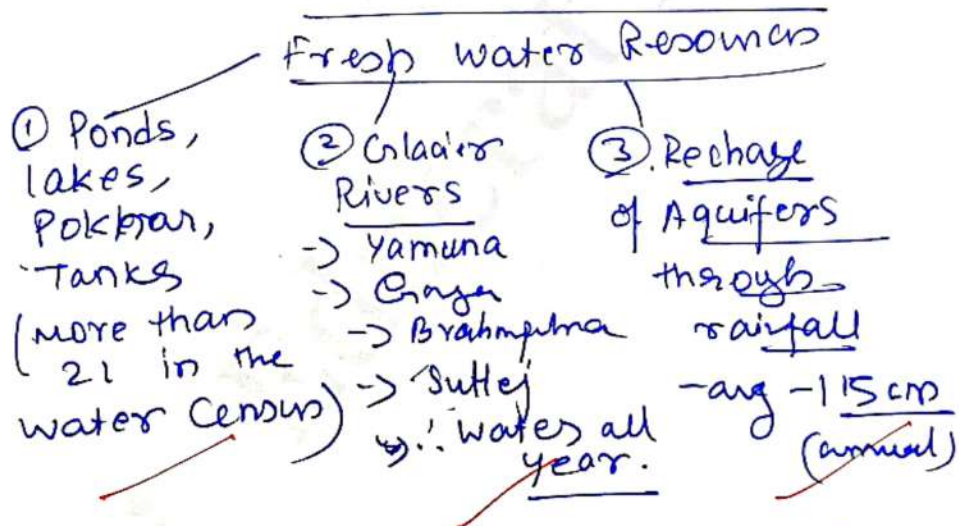 Fresh water Resources
① Ponds,
lakes,
Pokhar,
Tanks
(more than
21 in the
water Census)
② Glacier
Rivers
-> Yamuna
-> Ganga
-> Brahmputra
-> Sutlej
=> ∴ Water all
year.
③. Rechage
of Aquifers
through
rainfall
-avg -115 cm
(annual)